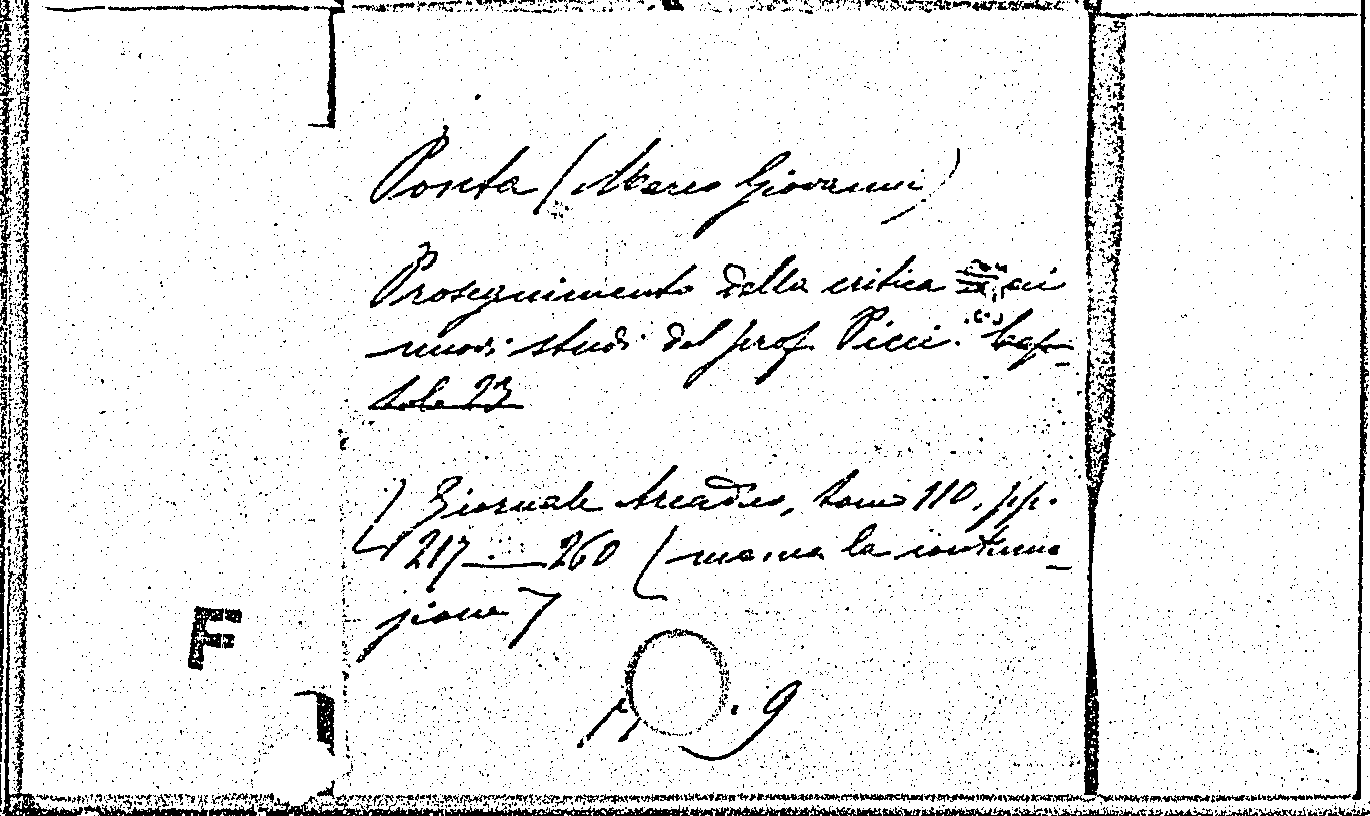 Ponta (Marco Giovanni)
Proseguimento della critica ai
nuovi studi del prof. Picci. Capi-
tolo 23
(Giornale Arcadico, tomo 110, pp.
217 — 260 (manca la continua-
zione)
F
9